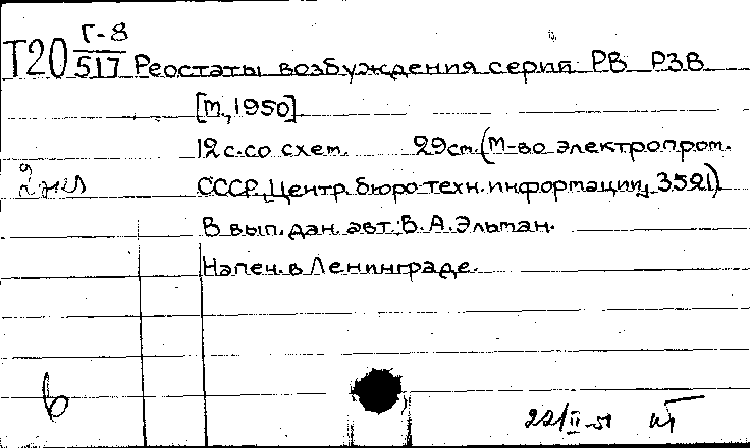 Г-8
Т20 517 Реостаты возбуждения серий РВ РЗВ
[М., 1950]
12 с. со схем. 29 см. (М-во электропром.
2 экз СССР. Центр. бюро техн. информации, 3521).
В вып. дан. авт.: В. А. Эльман.
Напеч. в Ленинграде.
6
22/II-51